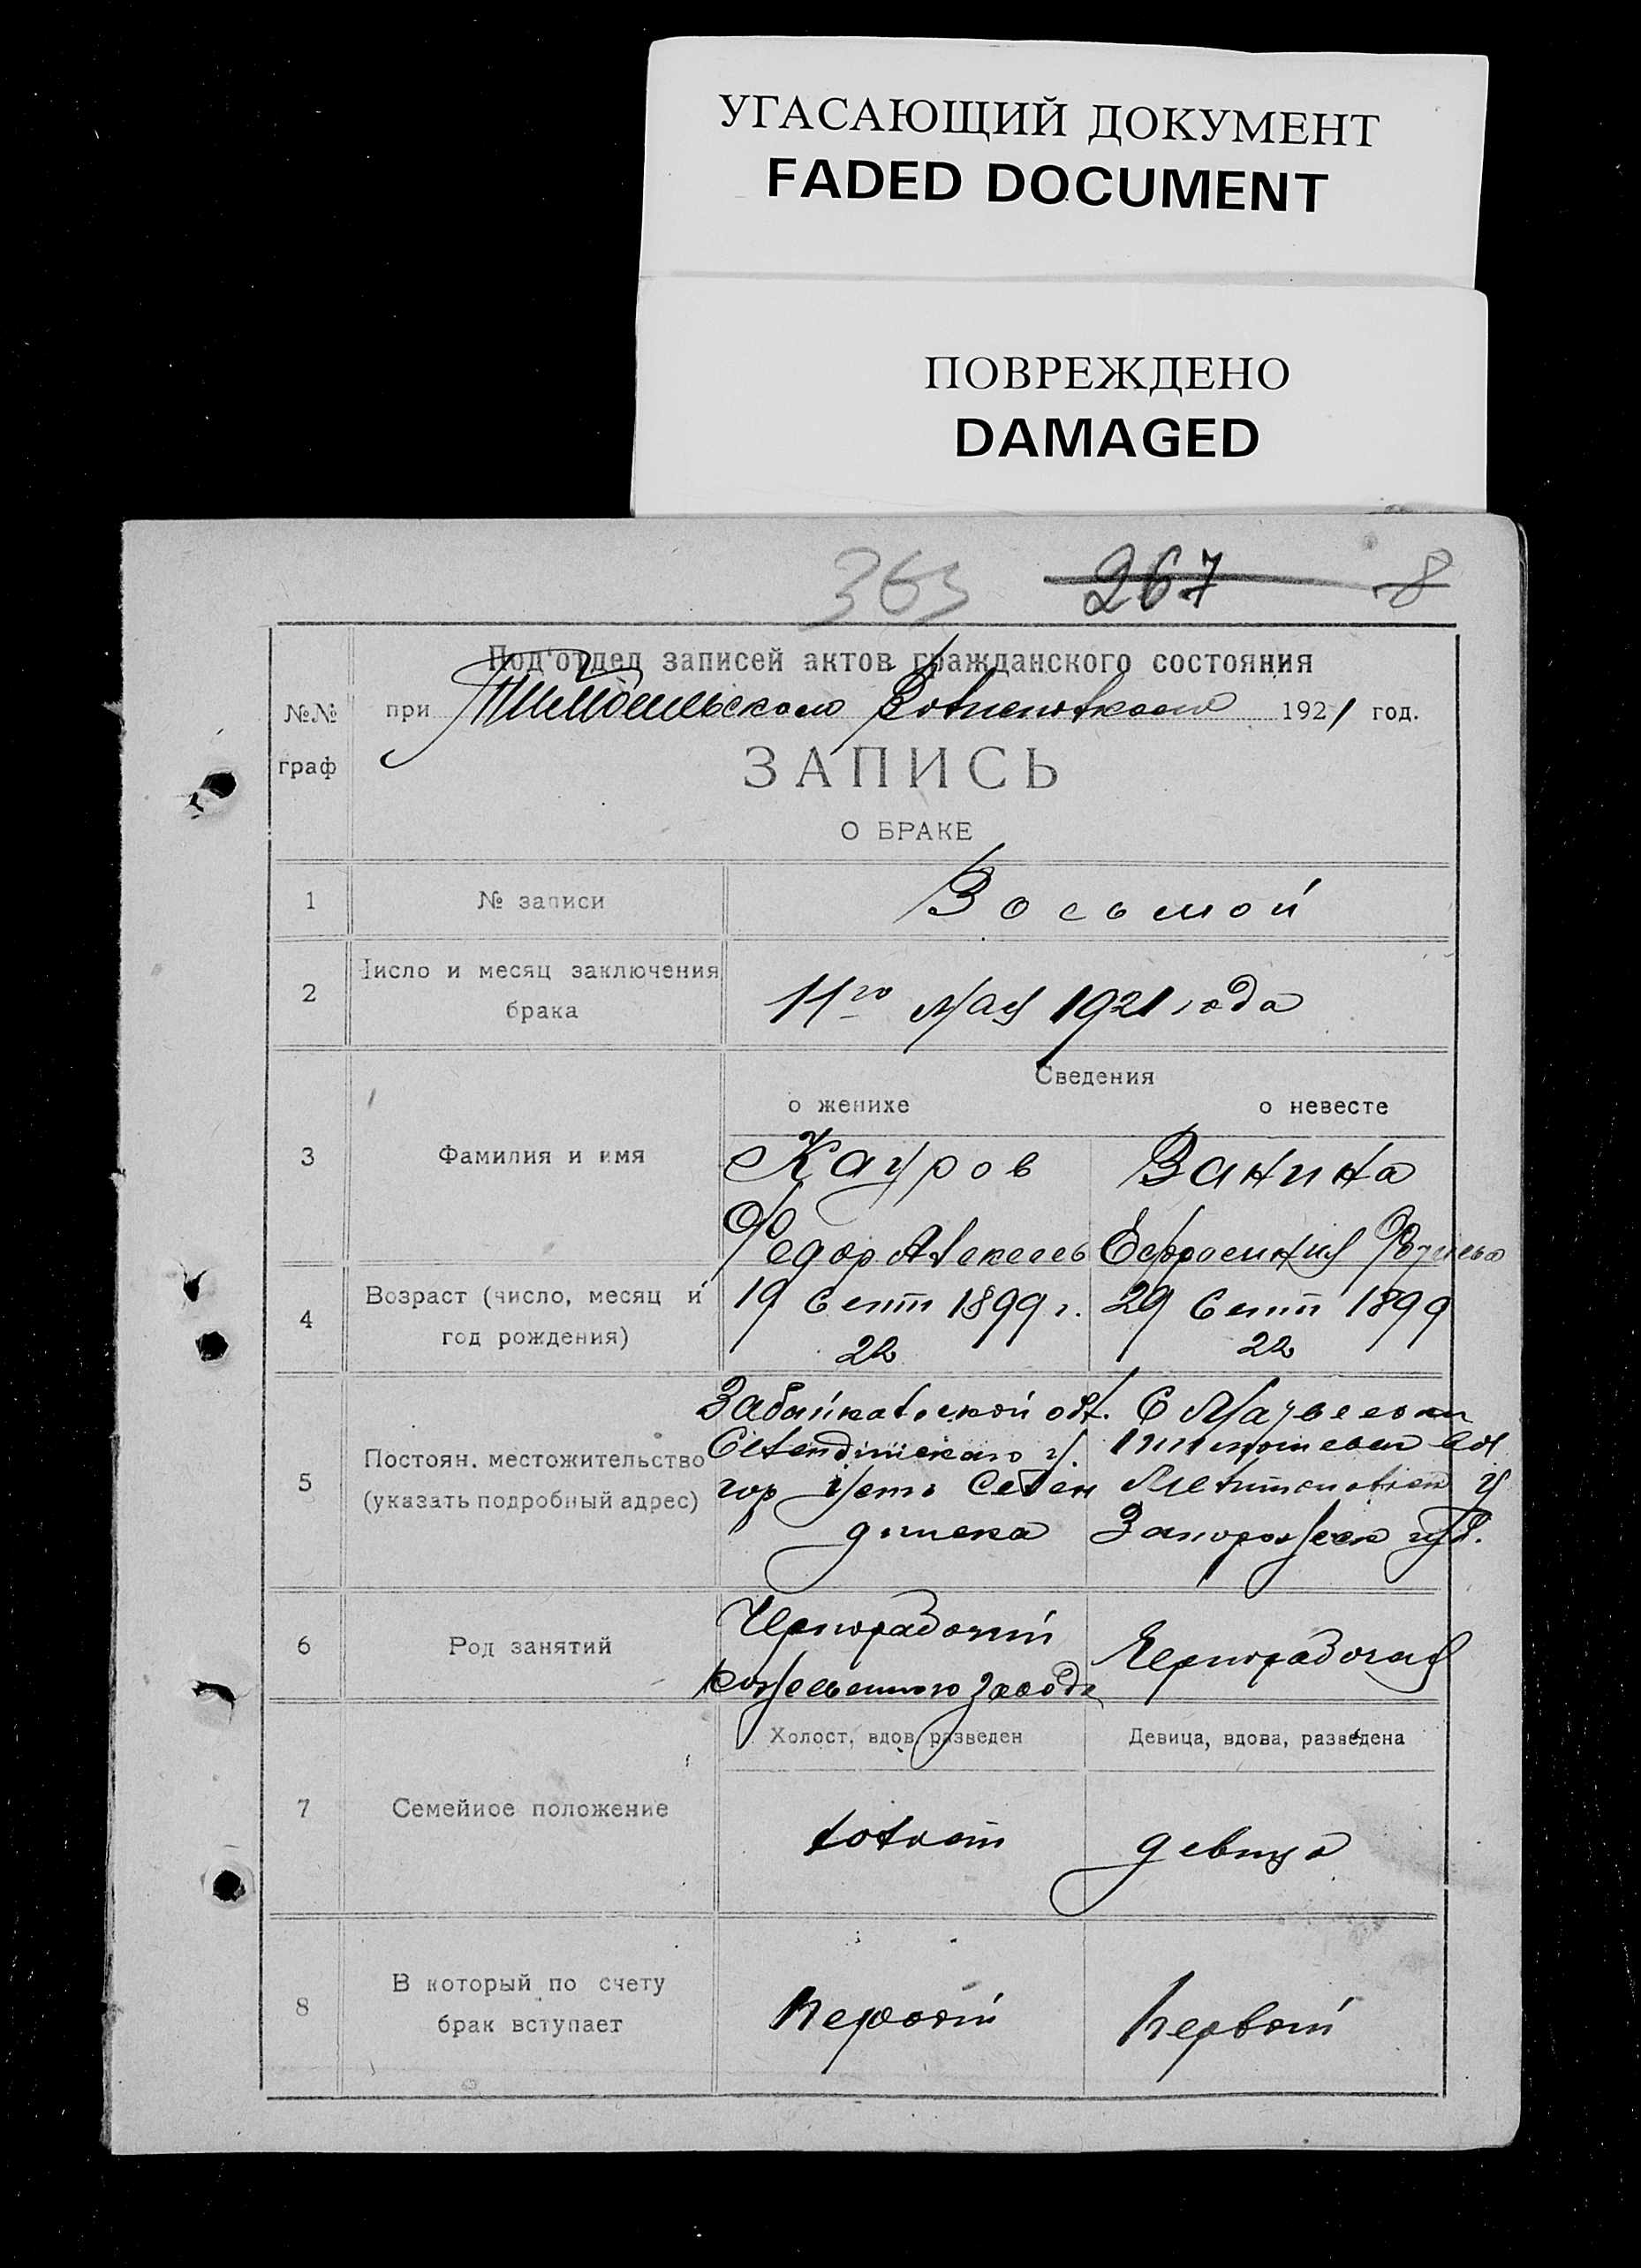 УГАСАЮЩИЙ ДОКУМЕНТ
FADED DOCUMENT
ПОВРЕЖДЕНО
DAMAGED
363 267 8
Под'отдел записей актов гражданского состояния
№№ при Волисполкоме 1921 год.
граф
ЗАПИСЬ
О БРАКЕ
1 № записи Восьмой
2 Число и месяц заключения
брака
11го Мая 1921 года
Сведения
о женихе о невесте
3 Фамилия и имя
Кауров Ванина
Федор Алексеев Ефросиния
4 Возраст (число, месяц и
год рождения)
19 Сент 1899 г. 29 Сент 1899
22 22
5 Постоян. местожительство
(указать подробный адрес)
Забайкальской обл. С Матвеевки
Селендинскаго у. вол
гор Усть Селен Мелитопольск у
динска Запорожск губ.
6 Род занятий
Чернорабочий Чернорабочая
кожевенного завода
Холост, вдов, разведен Девица, вдова, разведена
7 Семейное положение
холост девица
8 В который по счету
брак вступает
первый первый